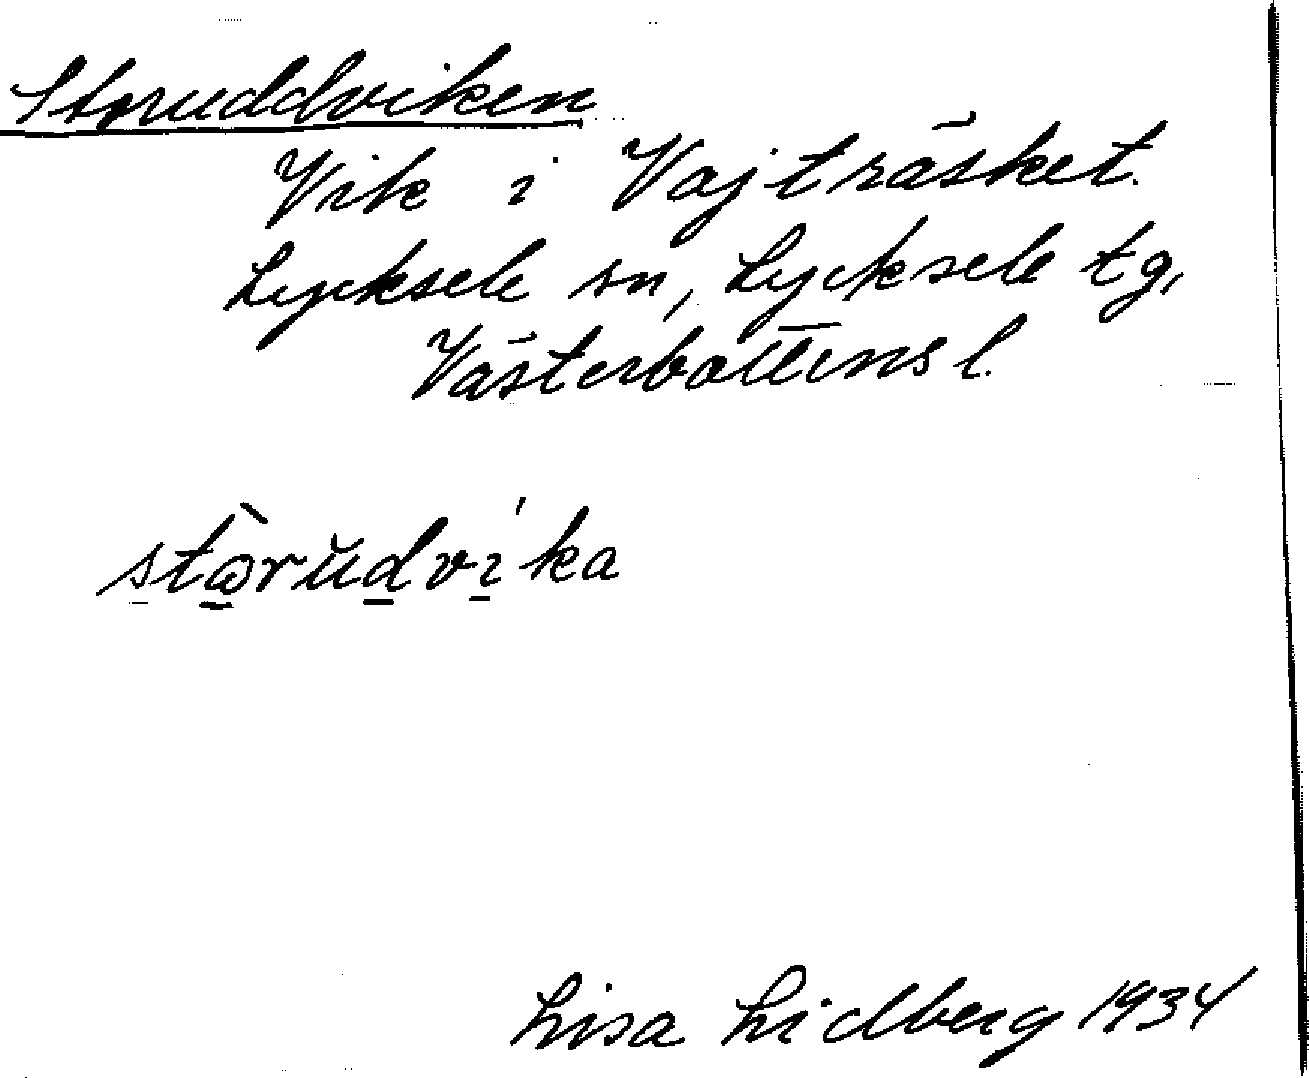 Storuddviken
Vik i Vajträsket.
Lycksele sn, Lycksele tg,
Västerbottens l.
stòrŭdvi'ka
Lisa Lidberg 1934